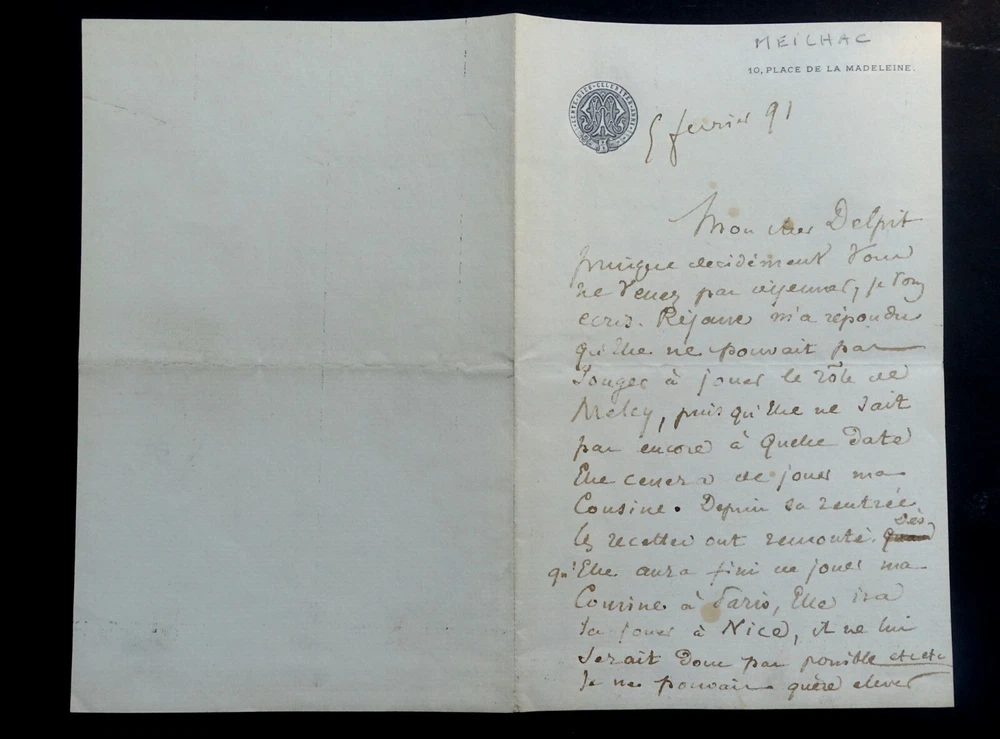 MEILHAC
10, PLACE DE LA MADELEINE.
5 fevrier 91
Mon cher Delpit
puisque decidément Vous
ne Venez pas dejeuner, je Vous
ecris. Réjane m'a répondu
qu'Elle ne pouvait pas
Songer à jouer le rôle de
puis qu'Elle ne sait
pas encore à Quelle date
Elle cessera de jouer ma
Cousine. Depuis sa rentrée
les recettes ont remonté. Dès
qu'Elle aura fini de jouer ma
Cousine à Paris, Elle ira
la jouer à Nice, il ne lui
serait donc pas possible etc etc
Je ne pouvais guère elever